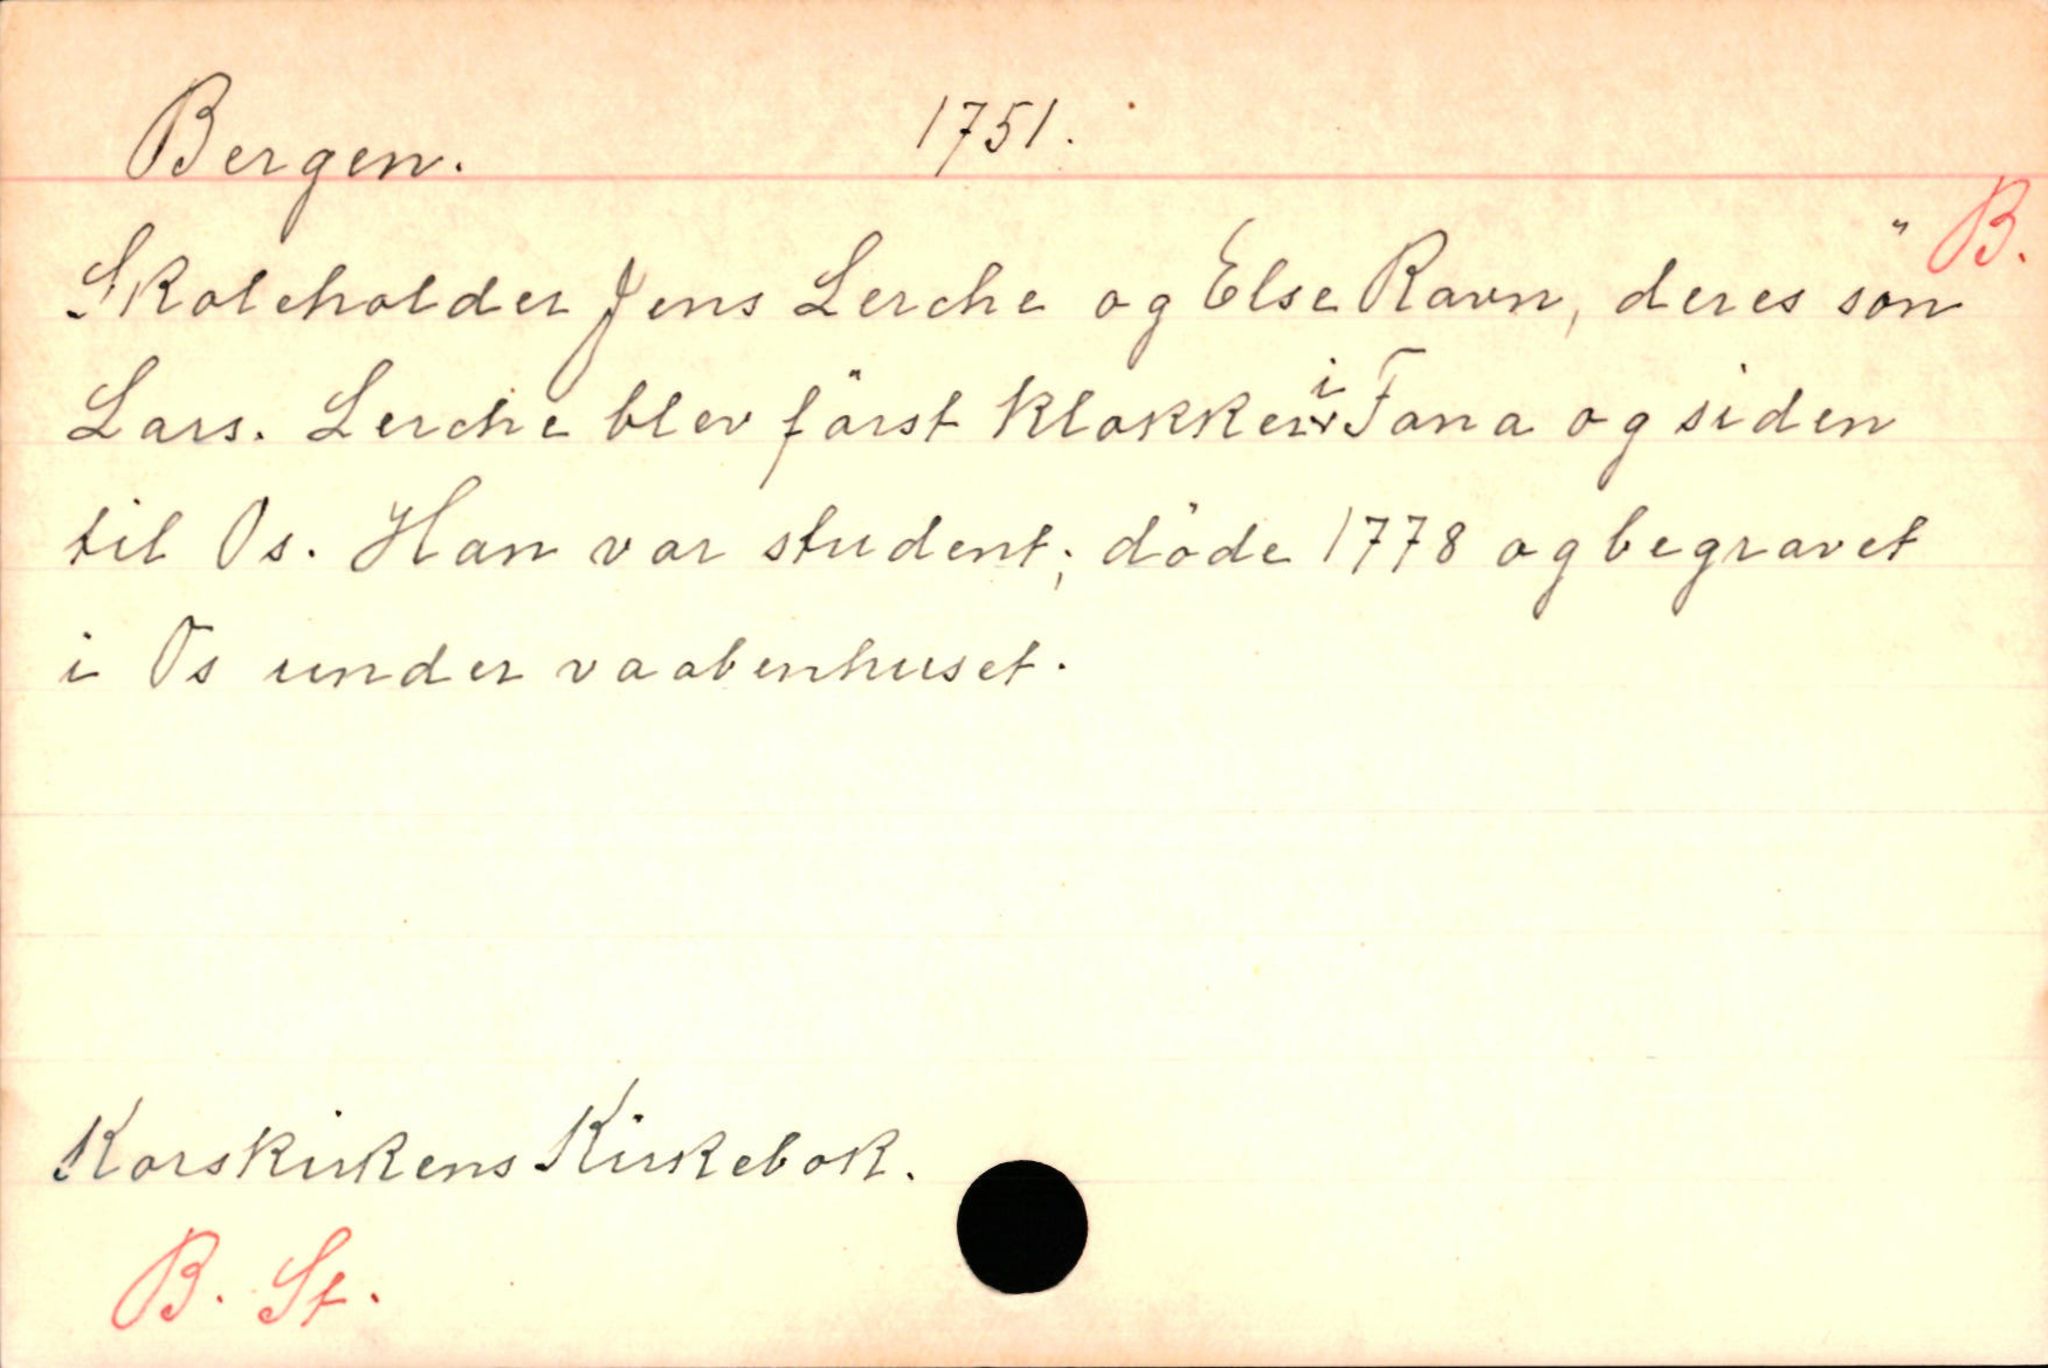 Bergen. 1751.
B.
Skoleholder Jens Lerche og Else Ravn, deres sön
Lars. Lerche blev först klokker i Fana og siden
til Os. Han var student; döde 1778 og begravet
i Os under vaabenhuset.
Korskirkens Kirkebok.
B. St.